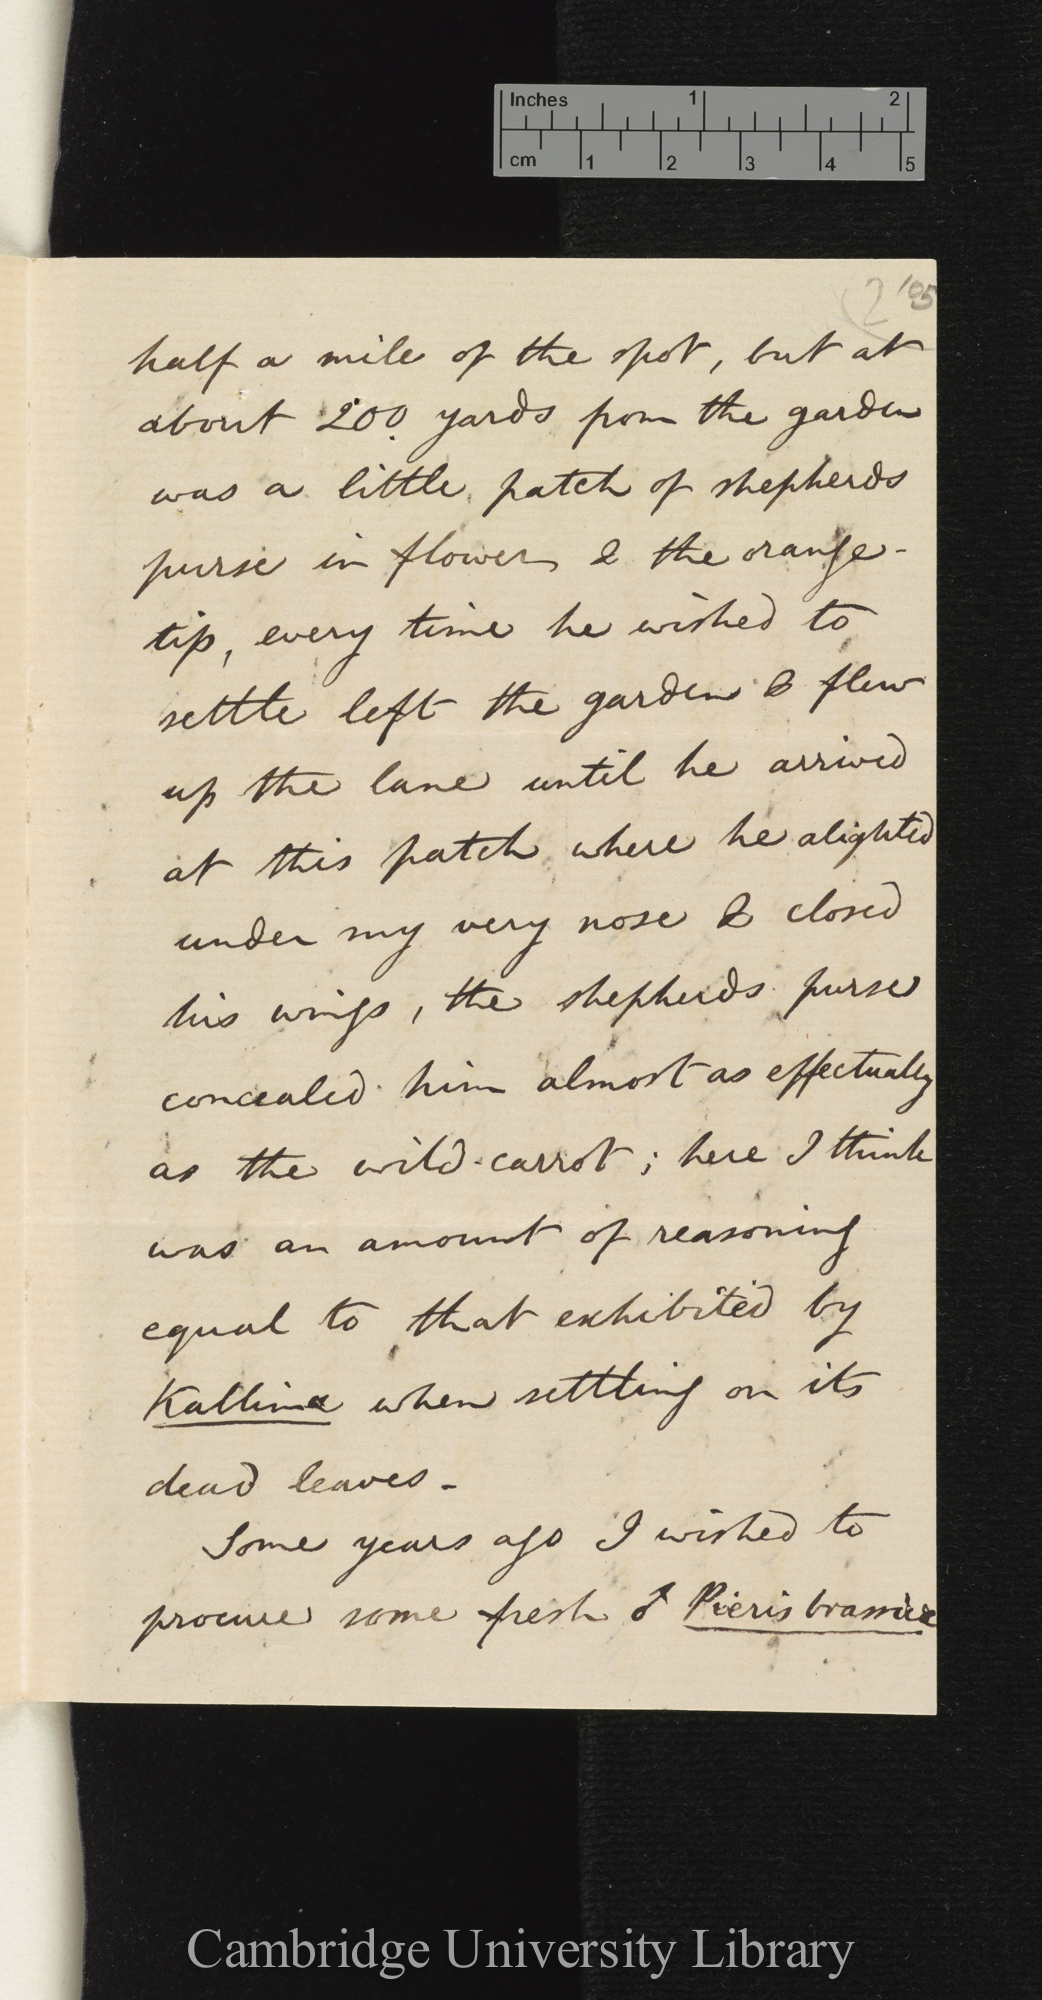 Inches 1 2
cm 1 2 3 4 5
half a mile of the spot, but at
about 200 yards from the garden
was a little patch of shepherds
purse in flower, & the orange-
tip, every time he wished to
settle left the garden & flew
up the lane until he arrived
at this patch where he alighted
under my very nose & closed
his wings, the shepherds purse
concealed him almost as effectually
as the wild-carrot; here I think
was an amount of reasoning
equal to that exhibited by
Kallima when settling on its
dead leaves.-
Some years ago I wished to
procure some fresh ♂ Pieris brassicæ
Cambridge University Library